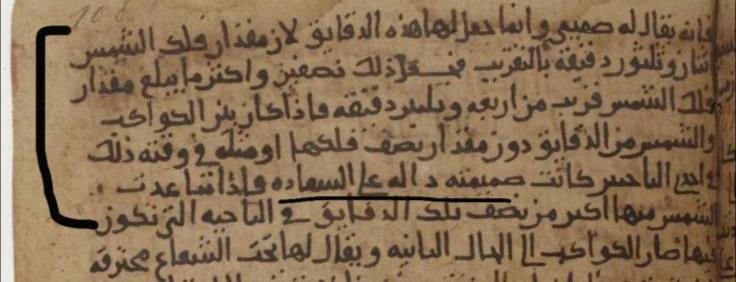 فانه يقال له صميمي وانما جعل لها هذه الدقايق لان مقدار فلك الشمس
اثنان وثلثون دقيقة بالتقريب فيقسم ذلك نصفين واكثر ما يبلغ مقدار
فلك الشمس قريب من اربعه وثلثين دقيقه فاذا كان بين الكواكب
والشمس من الدقايق دون مقدار نصف فلكها او مثله في وقته ذلك
في احدى الناحيتين كانت صميميته دالة على السعاده فاذا تباعدت
الشمس منها اكثر من نصف تلك الدقايق في الناحيه التي تكون
فيها صار الكواكب الى الحال الثانيه ويقال لها تحت الشعاع محترقه